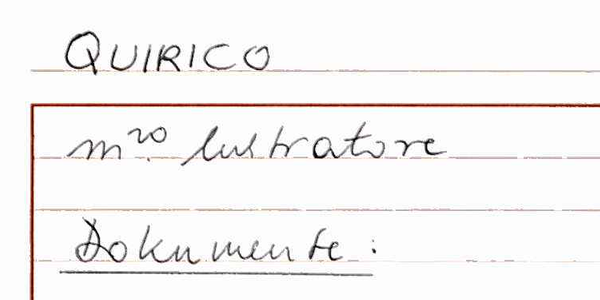 QUIRICO
m.ro lustratore
Dokumente: